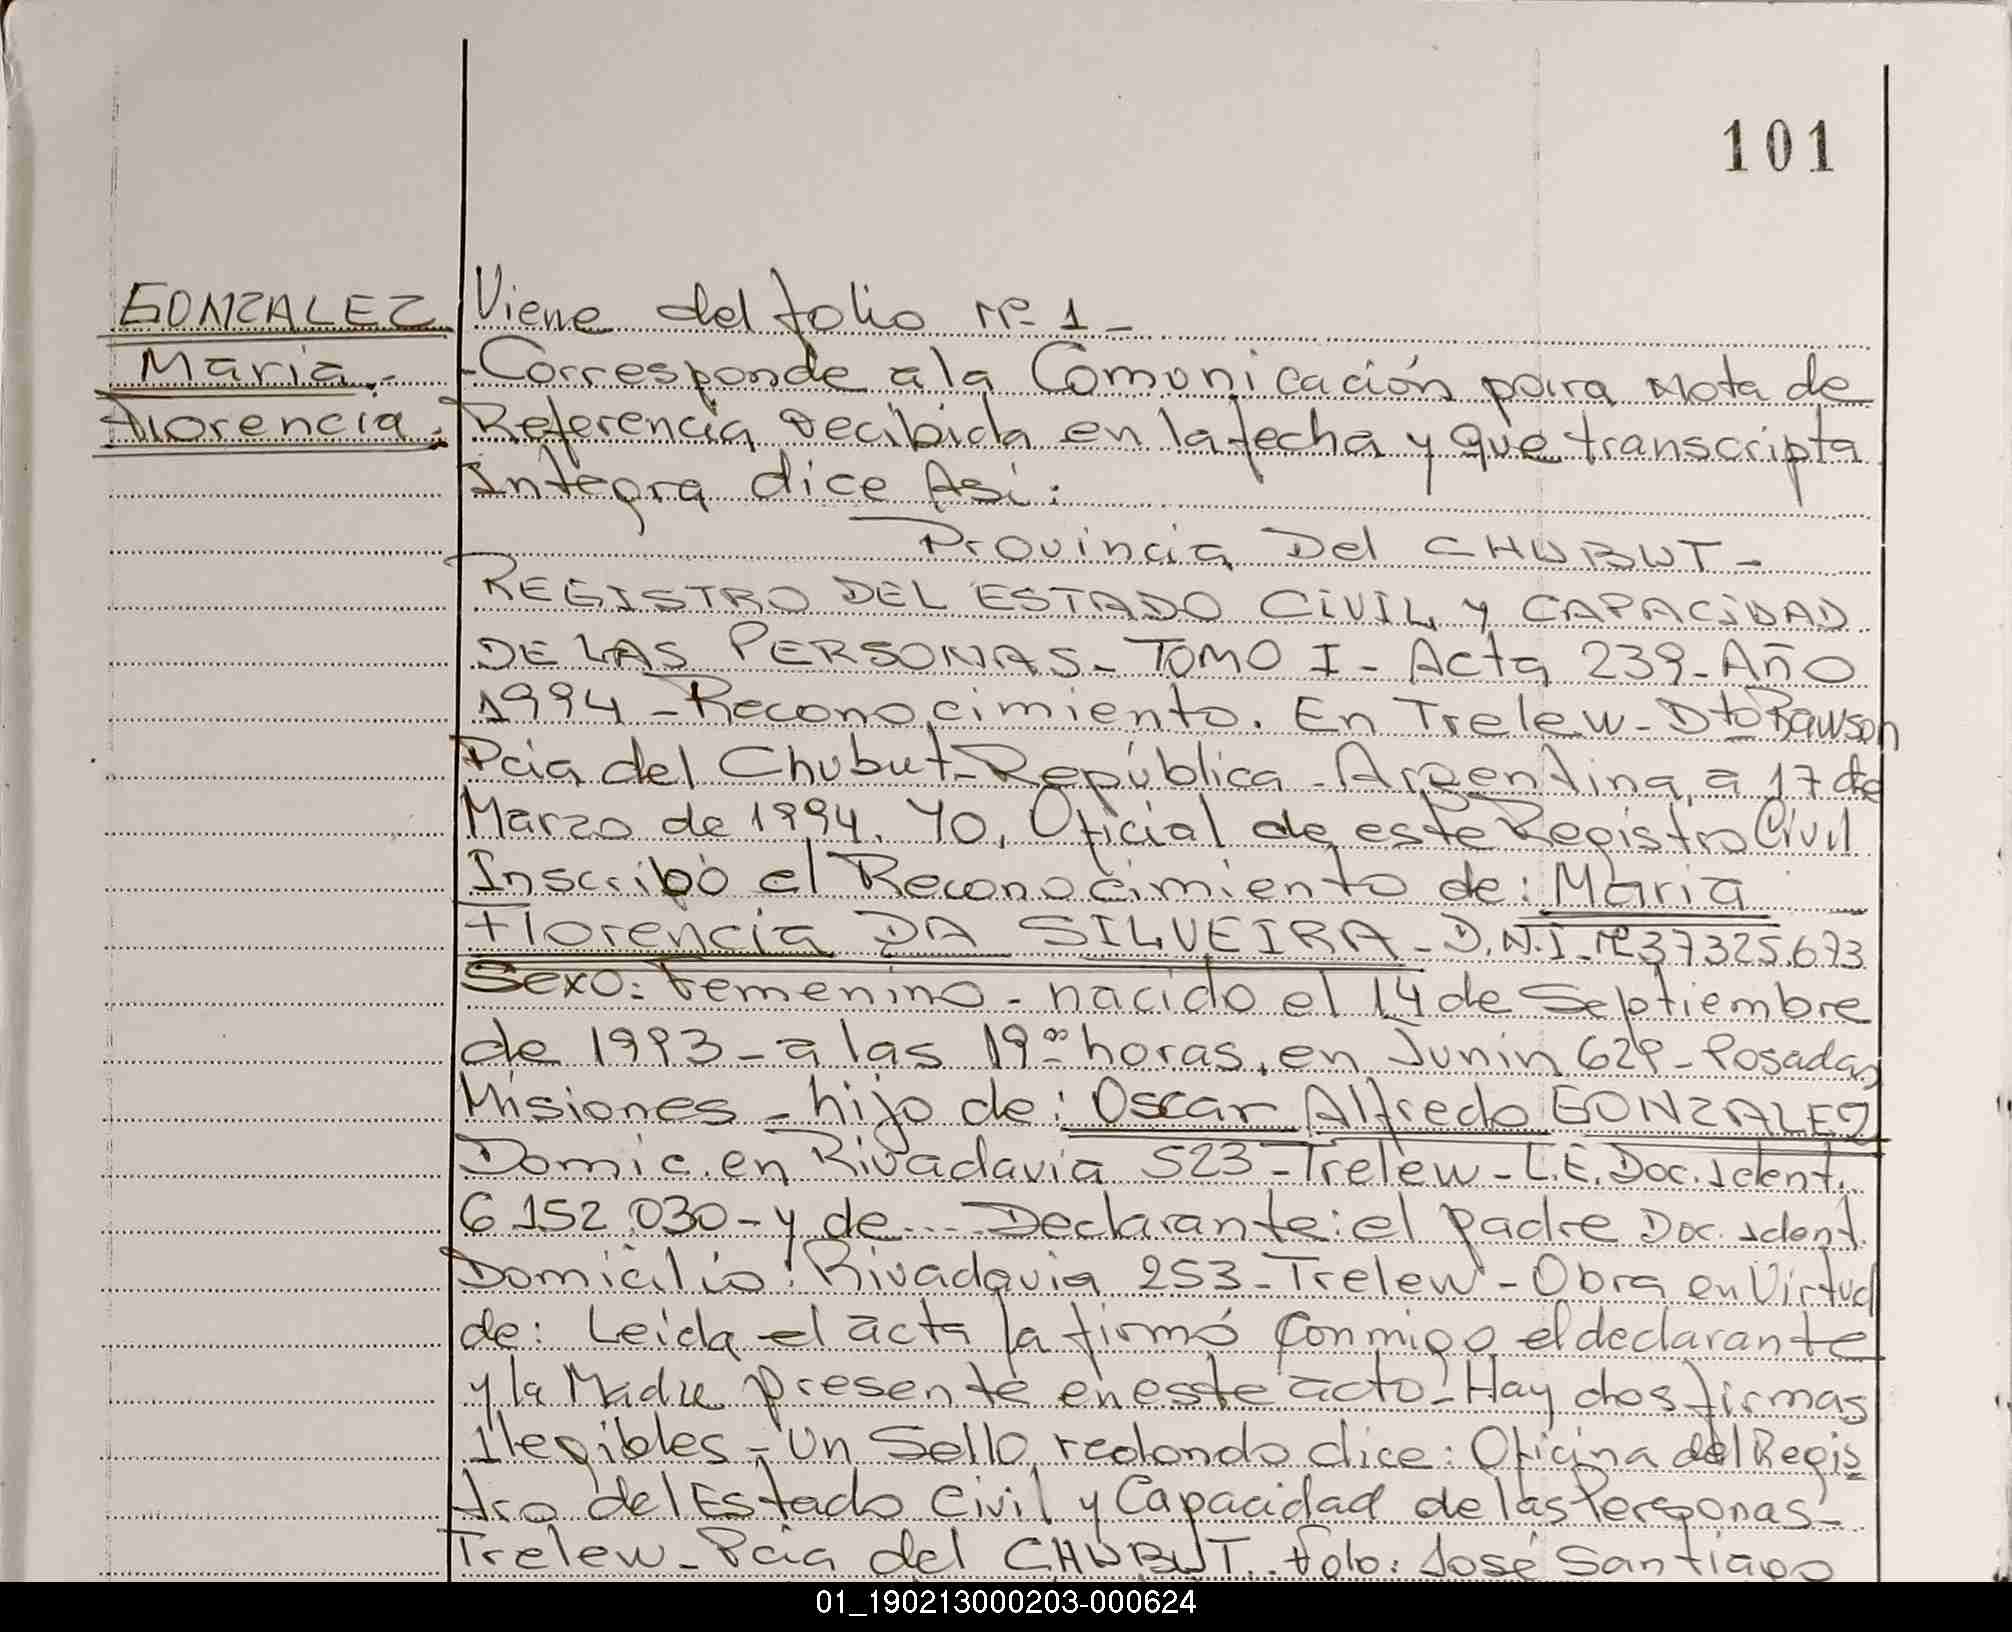 101
GONZALEZ
Maria.-
Florencia.
Viene del folio Nº 1-
-Corresponde a la Comunicación para Nota de
Referencia recibida en la fecha y que transcripta
Integra dice Así:
Provincia Del CHUBUT-
REGISTRO DEL ESTADO CIVIL y CAPACIDAD
DE LAS PERSONAS- TOMO I- Acta 239- Año
1994 - Reconocimiento. En Trelew- Dto Rawson
Pcia del Chubut- República - Argentina, a 17 de
Marzo de 1994. Yo, Oficial de este Registro Civil
Inscribo el Reconocimiento de: Maria
Florencia DA SILVEIRA- D.N.I. Nº 37325.673
Sexo: Femenino - nacido el 14 de Septiembre
de 1993 - a las 19 ºº horas, en Junin 629- Posadas
Misiones - hijo de: Oscar Alfredo GONZALEZ
Domic. en Rivadavia 523 - Trelew - L.E. Doc. Ident.
6 152 030 - y de.... Declarante: el padre Doc. Ident.
Domicilio: Rivadavia 253- Trelew - Obra en Virtud
de: Leida el acta la firmó conmigo el declarante
y la Madre presente en este acto- Hay dos firmas
Ilegibles - Un Sello redondo dice: Oficina del Regis
tro del Estado Civil y Capacidad de las Personas-
Trelew - Pcia del CHUBUT. Fdo: José Santiago
01_190213000203-000624